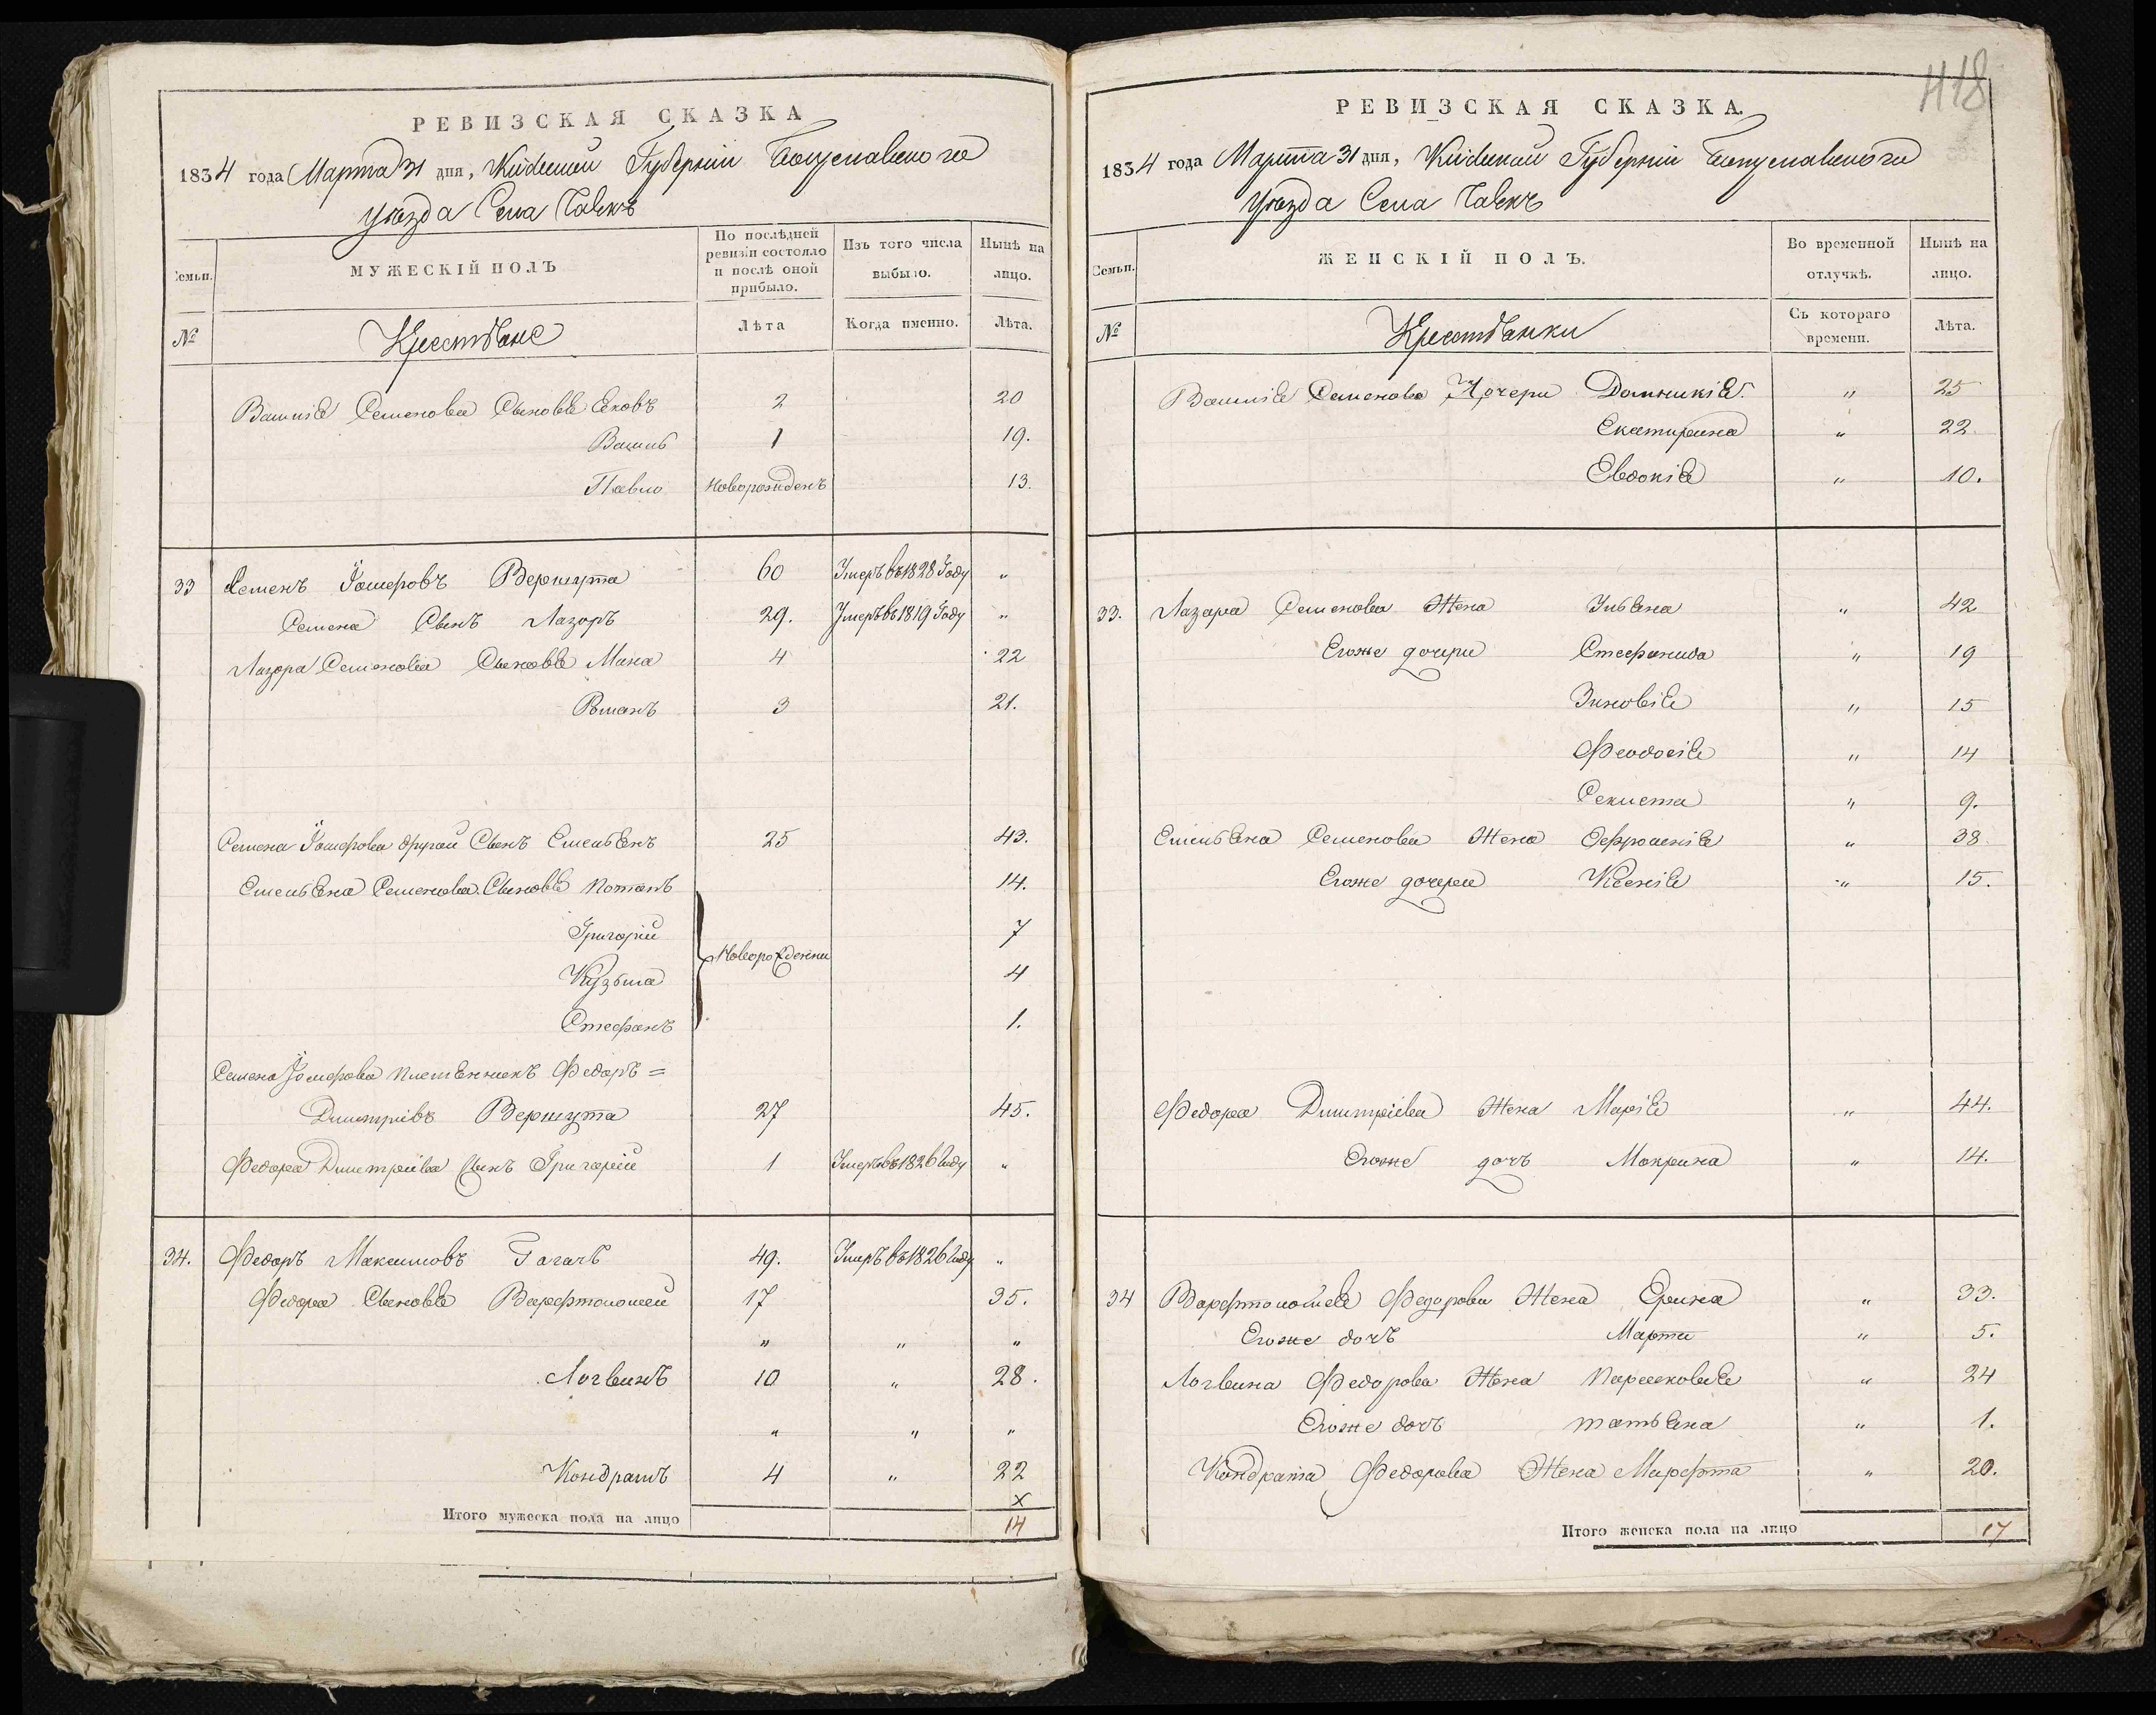 РЕВИЗСКАЯ СКАЗКА
1834 года Марта 31 дня, Кіевской Губерніи Богуславского
уѣзда Села
Семьи.
МУЖЕСКІЙ ПОЛЪ
По послѣдней ревизіи состояло и послѣ оной прибыло.
Изъ того числа выбыло.
Нынѣ на лицо.
№
Крестьяне
Лѣта
Когда именно.
Лѣта.
Василія Семенова Сыновья Яковъ 2 20
Василь 1 19.
Павло новорожденъ 13.
33 Семенъ Вершута 60 Умеръ въ 1828 Году "
Семена Сынъ Лазоръ 29. Умеръ въ 1819 Году "
Лазора Семенова Сыновья 4 22
Романъ 3 21.
Семена другой Сынъ Емельянъ 25 43.
Емельяна Семенова Сыновья Потапъ 14.
Григорій 7
Новорожденни
Кузьма 4
Стефанъ 1.
Семена племянникъ Федоръ =
Дмитріевъ Вершута 27 45.
Федора Дмитріева Сынъ Григорій 1 Умеръ въ 1826 Году "
34. Федоръ Максимовъ 49. Умеръ въ 1826 Году "
Федора Сыновья Варфтоломей 17 35.
" " "
Логвинъ 10 " 28.
" " "
Кондратъ 4 " 22
х
Итого мужеска пола на лицо 14
418
РЕВИЗСКАЯ СКАЗКА.
1834 года Марта 31 дня, Кіевской Губерніи Богуславского
Уѣзда Села
Семьи.
ЖЕНСКІЙ ПОЛЪ.
Во временной отлучкѣ.
Нынѣ на лицо.
№
Крестьянки
Съ котораго времени.
Лѣта.
Василія Семенова Дочери Домникія. " 25
Екатирина " 22.
Евдокія " 10.
33. Лазара Семенова Жена Ульяна " 42
Егоже дочери Стефанида " 19
Зиновія " 15
Феодосія " 14
Секлета " 9.
Емельяна Семенова Жена Ефросинія " 38
Егоже дочери Ксенія " 15.
Федора Дмитріева Жена Марія " 44.
Егоже дочь Макрина " 14.
34 Варфтоломея Федорова Жена Ерина " 33.
Егоже дочь Марта " 5.
Логвина Федорова Жена Парасковія " 24
Егоже дочь татьяна " 1.
Кондрата Федорова Жена Марфта " 20.
Итого женска пола на лицо 17